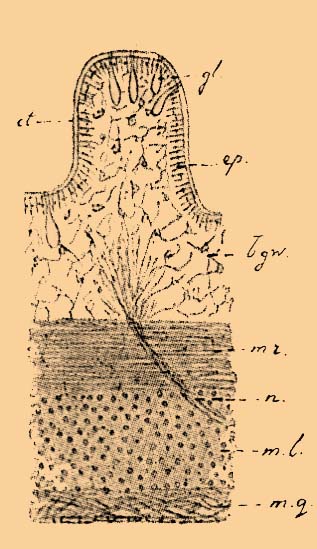 gl.
ct
ep.
bgw.
mr.
n.
m.l.
m.q.